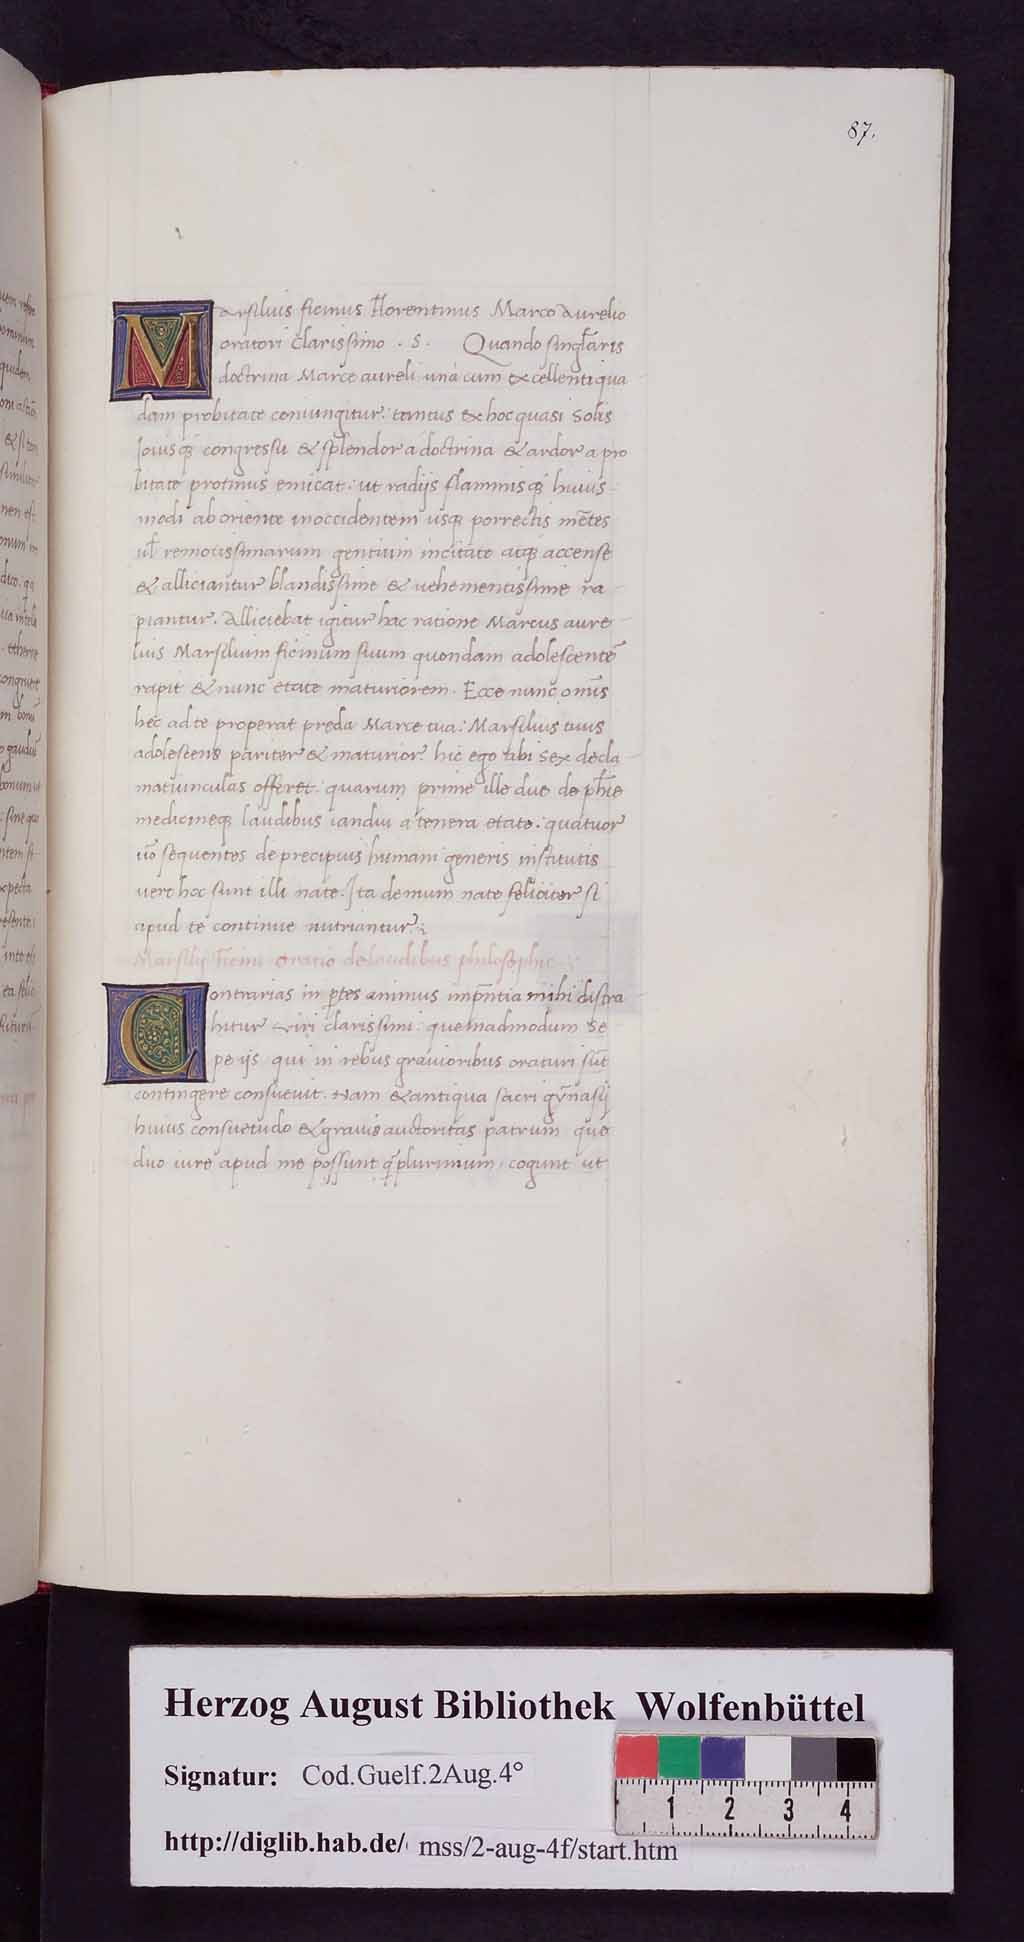 87.
Marsilius ficinus Florentinus Marco Aurelio
oratori clarissimo . S. Quando singl̄aris
doctrina Marce aureli una cum excellenti qua
dam probitate coniungitur: tantus ex hoc quasi Solis
Iouisqȝ congressu & splendor a doctrina & ardor a pro
bitate protinus emicat: ut radijs flammisqȝ huius
modi ab oriente in occidentem usqȝ porrectis mētes
ul̄ remotissimarum gentium incitate atqȝ accense
& alliciantur blandissime & uehementissime ra
piantur. Alliciebat igitur hac ratione Marcus aure
lius Marsilium ficinum suum quondam adolescentē
rapit & nunc etate maturiorem. Ecce nunc
hec ad te properat preda Marce tua: Marsilius tuus
adolescens pariter & maturior. hic ego tibi sex decla
matiunculas offeret: quarum prime ille due de ph̄ie
medicineqȝ laudibus iandiu a tenera etate: quatuor
uō sequentes de precipuis humani generis institutis
uere hoc sunt illi nate. Ita demum nate feliciter si
apud te continue nutriantur.
Marsilij Ficini oratio de laudibus philosophie
Contrarias in ptes animus imp̄ntia mihi distra
hitur uiri clarissimi: quemadmodum se
pe ijs qui in rebus grauioribus oraturi sūt
contingere consueuit. Nam & antiqua sacri gȳnasij
huius consuetudo & grauis auctoritas patrum que
duo iure apud me possunt q̄plurimum, cogunt ut
Herzog August Bibliothek Wolfenbüttel
Signatur: Cod.Guelf.2Aug.4°
1 2 3 4
http://diglib.hab.de/ mss/2-aug-4f/start.htm